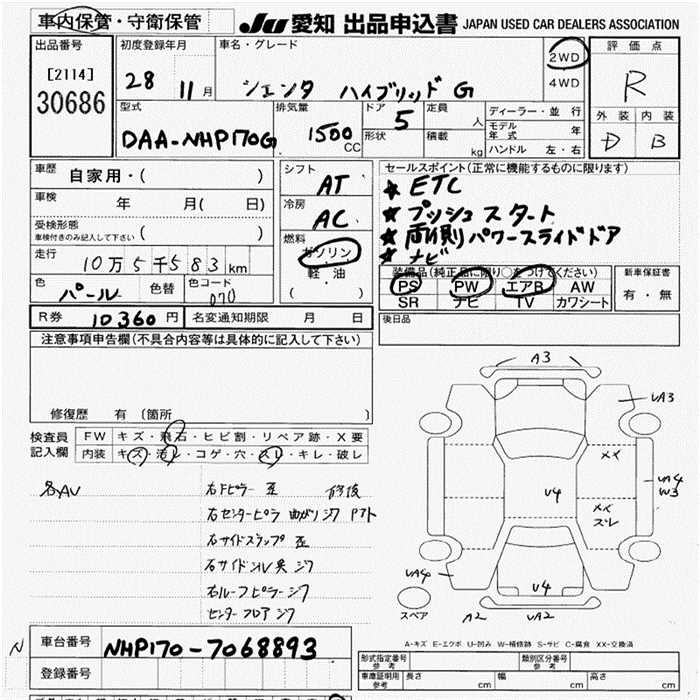 車内保管・守衛保管
JU 愛知 出品申込書 JAPAN USED CAR DEALERS ASSOCIATION
出品番号
[2114]
30686
初度登録年月
28 11月
車名・グレード
シエンタ ハイブリッド G
2WD
4WD
評価点
R
外装 内装
D B
型式
DAA-NHP170G
排気量
1500
CC
ドア
5
形状
定員
人
積載
kg
ディーラー・並行
モデル年式 年
ハンドル 左・右
車歴
自家用・( )
車検
年 月( 日)
受検形態
車検付きのみ記入して下さい ( )
走行
10万5千583km
色
パール
色替
色コード
070
シフト
AT
冷房
AC
燃料
ガソリン
軽・油
( )
セールスポイント(正常に機能するものに限ります)
★ ETC
★ プッシュスタート
★ 両側パワースライドドア
★ ナビ
装備品(純正品に限り○をつけてください)
PS PW エアB AW
SR ナビ TV カワシート
新車保証書
有・無
R券 10360円
名変通知期限 月 日
後日品
注意事項申告欄(不具合内容等は具体的に記入して下さい)
修復歴 有 〔箇所 〕
検査員記入欄
FW キズ・飛石・ヒビ割・リペア跡・X要
内装 キズ・汚レ・コゲ・穴・スレ・キレ・破レ
右Fピラー 歪 修後
右センターピラ 曲がりジワ
右サイドステップ 歪
右ルーフピラー ジワ
センターフロア ジワ
A3
UA3
XX
U4
UA4
W3
XX
ズレ
UA4
U4
A2
UA2
スペア
A-キズ E-エクボ U-凹み W-補修跡 S-サビ C-腐食 XX-交換済
N
車台番号
NHP170-7068893
登録番号
形式指定番号
参考
類別区分番号
参考
車庫証明用
参考
長さ cm
幅 cm
高さ cm